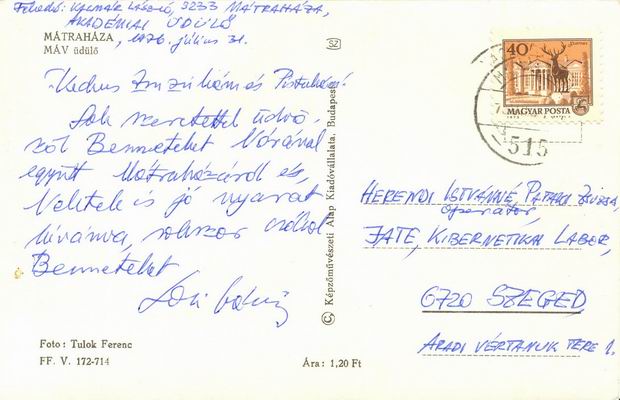 Feladó: Kalmár László, 3233 MÁTRAHÁZA,
AKADÉMIAI ÜDÜLŐ
MÁTRAHÁZA
MÁV üdülő
, 1976. július 31.
SZ
40f
MAGYAR POSTA
515
Kedves Zsuzsikám és Pistukám!
Sok szeretettel üdvö-
zöl Benneteket Nóránál
együtt Mátraházáról és,
Nektek is jó nyarat
kívánva, sokszor csókol
Benneteket
Laci bácsi
© Képzőművészeti Alap Kiadóvállalata, Budapest
HERENDI ISTVÁNNÉ, PATAKI Zsuzsa,
operátor,
JATE, KIBERNETIKAI LABOR,
6720 SZEGED
ARADI VÉRTANUK TERE 1.
Foto: Tulok Ferenc
FF. V. 172-714
Ára: 1,20 Ft